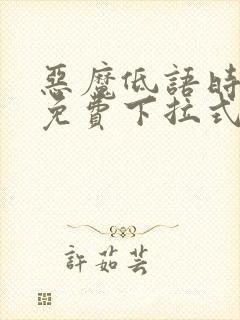 惡魔低語時
免費下拉式
許茹芸